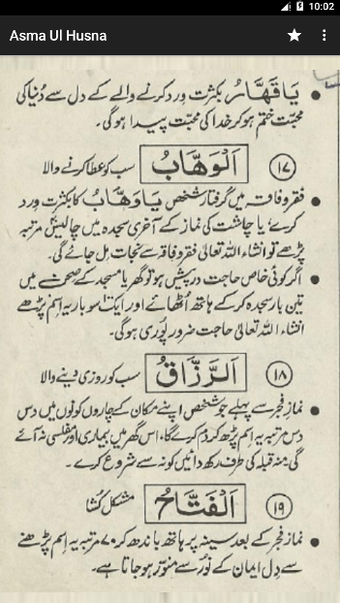 10:02
Asma Ul Husna
یَا قَھَّارُ بکثرت ورد کرنے والے کے دل سے دُنیا کی
محبّت ختم ہو کر خدا کی محبّت پیدا ہوگی۔
۱۷ اَلْوَھَّابُ سب کو عطا کرنے والا
فقر و فاقہ میں گرفتار شخص یَا وَھَّابُ کا بکثرت ورد
کرے یا چاشت کی نماز کے آخری سجدہ میں چالیس مرتبہ
پڑھے تو انشاء اللہ تعالیٰ فقر و فاقہ سے نجات مل جائے گی۔
اگر کوئی خاص حاجت درپیش ہو تو گھر یا مسجد کے صحن میں
تین بار سجدہ کر کے ہاتھ اُٹھائے اور ایک سو بار یہ اِسم پڑھے
انشاء اللہ تعالیٰ حاجت ضرور پُوری ہوگی۔
۱۸ اَلرَّزَّاقُ سب کو روزی دینے والا
نمازِ فجر سے پہلے جو شخص اپنے مکان کے چاروں کونوں میں دس
دس مرتبہ یہ اِسم پڑھ کر دم کرے گا، اس گھر میں بیماری اور مفلسی نہ آئے
گی منہ قبلہ کی طرف رکھ دائیں کونہ سے شروع کرے۔
۱۹ اَلْفَتَّاحُ مشکل کُشا
نمازِ فجر کے بعد سینہ پر ہاتھ باندھ کر ۷۰ مرتبہ یہ اِسم پڑھنے
سے دِل ایمان کے نُور سے منوّر ہو جاتا ہے۔